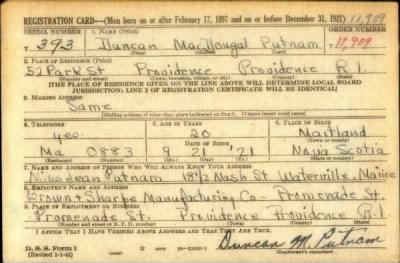 REGISTRATION CARD—(Men born on or after February 17, 1897 and on or before December 31, 1921) 11,909
SERIAL NUMBER 1. NAME (Print) ORDER NUMBER
T 393 Duncan MacDougal Putnam T 11,909
(First) (Middle) (Last)
2. PLACE OF RESIDENCE (Print)
52 Park St Providence Providence R.I.
(Number and street) (Town, township, village, or city) (County) (State)
[THE PLACE OF RESIDENCE GIVEN ON THE LINE ABOVE WILL DETERMINE LOCAL BOARD
JURISDICTION; LINE 2 OF REGISTRATION CERTIFICATE WILL BE IDENTICAL]
3. MAILING ADDRESS
Same
[Mailing address if other than place indicated on line 2. If same insert word same]
4. TELEPHONE 5. AGE IN YEARS 6. PLACE OF BIRTH
yes 20 Maitland
DATE OF BIRTH (Town or county)
Ma 0883 9 21 21 Nova Scotia
(Exchange) (Number) (Mo.) (Day) (Yr.) (State or country)
7. NAME AND ADDRESS OF PERSON WHO WILL ALWAYS KNOW YOUR ADDRESS
Miss Jean Putnam 18½ Nash St Waterville, Maine
8. EMPLOYER'S NAME AND ADDRESS
Brown & Sharpe Manufacturing Co - Promenade St.
9. PLACE OF EMPLOYMENT OR BUSINESS
Promenade St. Providence Providence R.I.
(Number and street or R. F. D. number) (Town) (County) (State)
I AFFIRM THAT I HAVE VERIFIED ABOVE ANSWERS AND THAT THEY ARE TRUE.
D. S. S. Form 1
Duncan M. Putnam
(Registrant's signature)